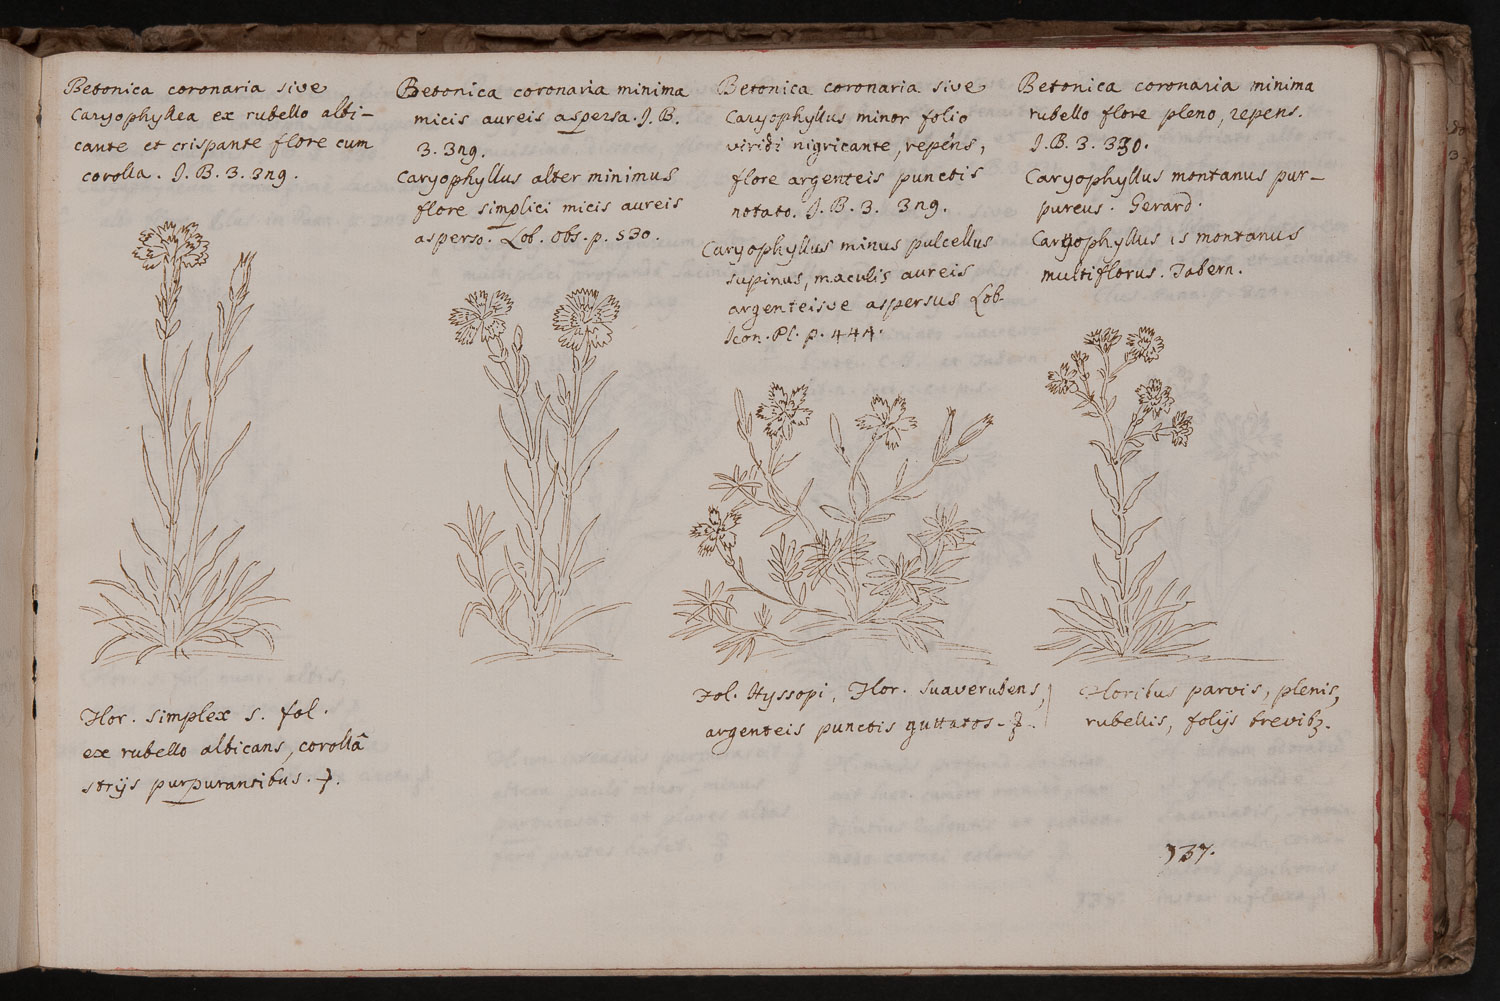 Betonica coronaria sive
Caryophyllea ex rubello albi-
cante et crispante flore cum
corolla. J. B. 3. 329.
Flor. simplex s. fol.
ex rubello albicans, corollâ
strijs purpurantibus.
Betonica coronaria minima
micis aureis aspersa. J. B.
3. 329.
Caryophyllus alter minimus
flore simplici micis aureis
asperso. Lob. Obs. p. 530.
Betonica coronaria sive
Caryophyllus minor folio
viridi nigricante, repens,
flore argenteis punctis
notato. J. B. 3. 329.
Caryophyllus minus pulcellus
supinus, maculis aureis
argenteisve aspersus Lob.
Icon. Pl. p. 444.
Fol. Hyssopi, Flor. suaverubens,
argenteis punctis guttatos.
Betonica coronaria minima
rubello flore pleno, repens.
J. B. 3. 330.
Caryophyllus montanus pur-
pureus. Gerard.
Caryophyllus is montanus
multiflorus. Tabern.
Floribus parvis, plenis,
rubellis, folijs brevib3.
337.